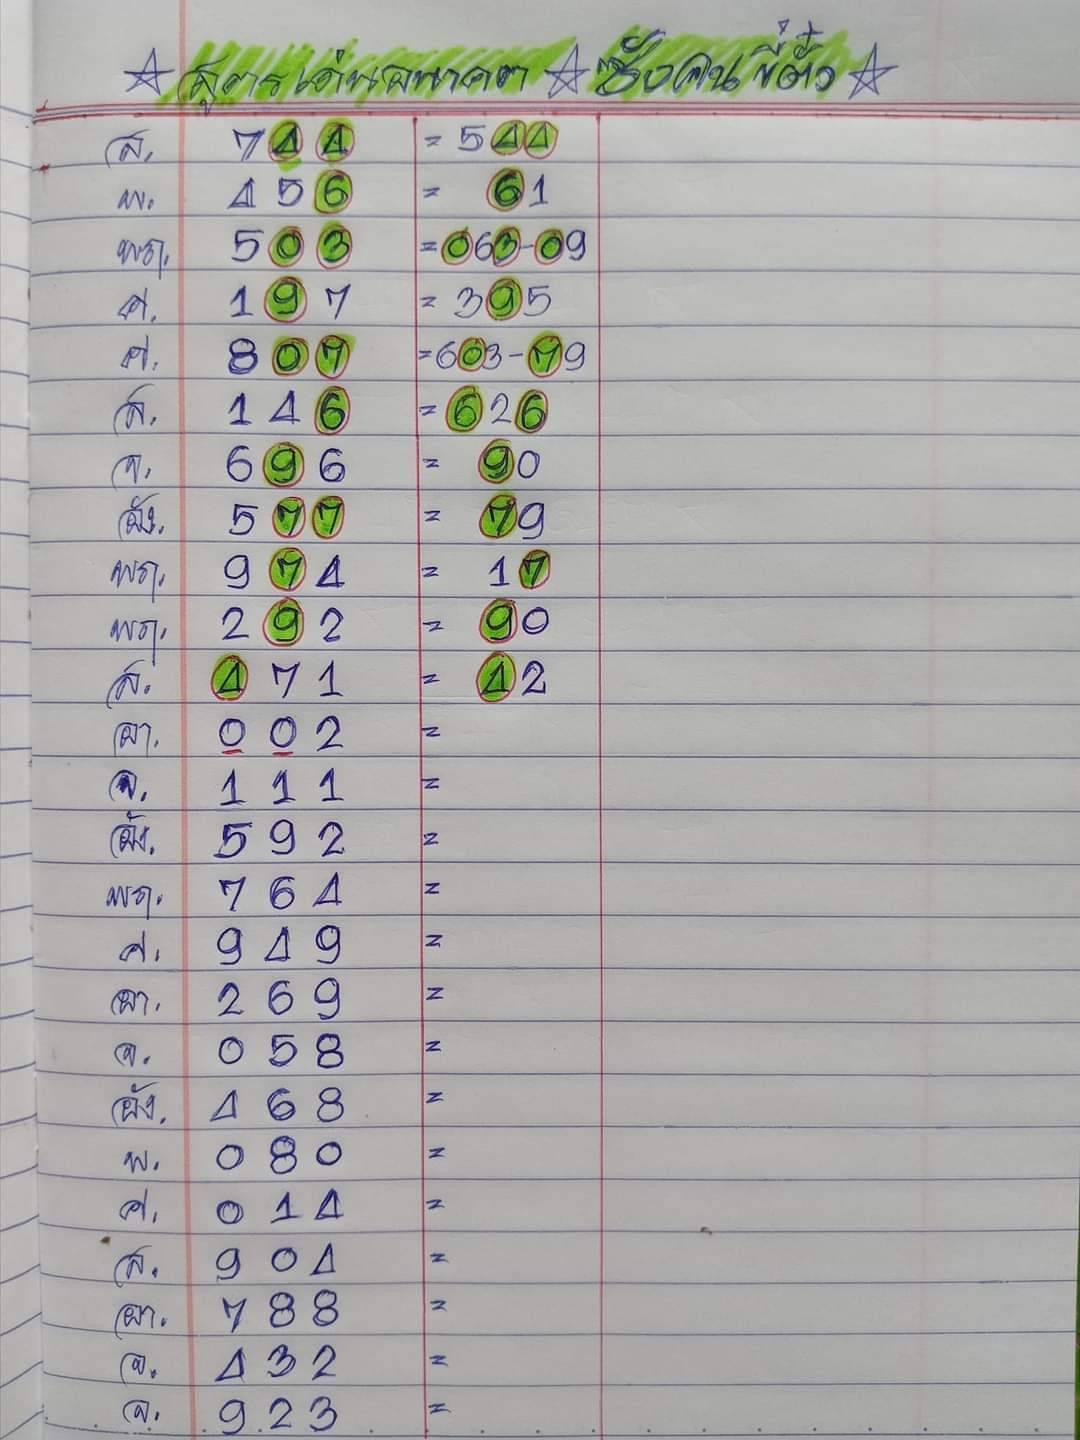 ☆ สูตรเด่นอนาคต ☆ ซั่งคนขี้ตั๋ว ☆
ส. 744 = 544
พ. 456 = 61
พฤ. 503 = 063-09
ศ. 197 = 395
ศ. 807 = 603-79
ส. 146 = 626
จ. 696 = 90
อัง. 577 = 79
พฤ. 974 = 17
พฤ. 292 = 90
ส. 471 = 42
อา. 002 =
จ. 111 =
อัง. 592 =
พฤ. 764 =
ศ. 949 =
อา. 269 =
จ. 058 =
อัง. 468 =
พ. 080 =
ศ. 014 =
ส. 904 =
อา. 788 =
จ. 432 =
จ. 923 =